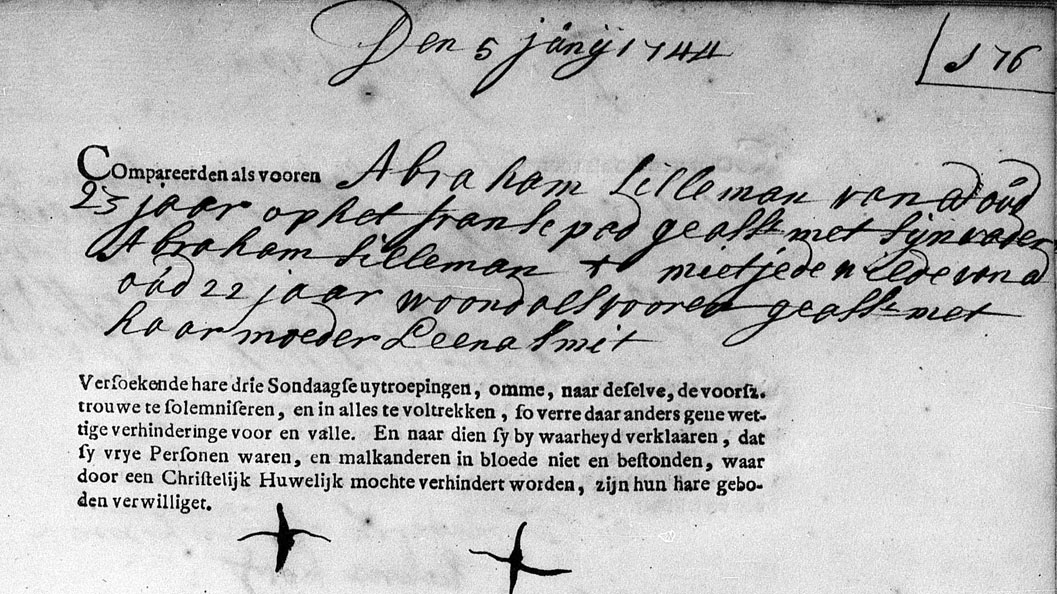 Den 5 junij 1744
176
Compareerden als vooren Abraham Silleman van a oud
25 jaar op het franse pad geasst met sijn vader
Abraham Silleman & mietje de wilde van a
oud 22 jaar woond als vooren geasst met
haar moeder Leena Smit
Verſoekende hare drie Sondaagſe uytroepingen, omme, naar deſelve, de voorſz.
trouwe te ſolemniſeren, en in alles te voltrekken, ſo verre daar anders gene wet-
tige verhinderinge voor en valle. En naar dien ſy by waarheyd verklaaren, dat
ſy vrye Perſonen waren, en malkanderen in bloede niet en beſtonden, waar
door een Chriſtelijk Huwelijk mochte verhindert worden, zijn hun hare gebo-
den verwilliget.